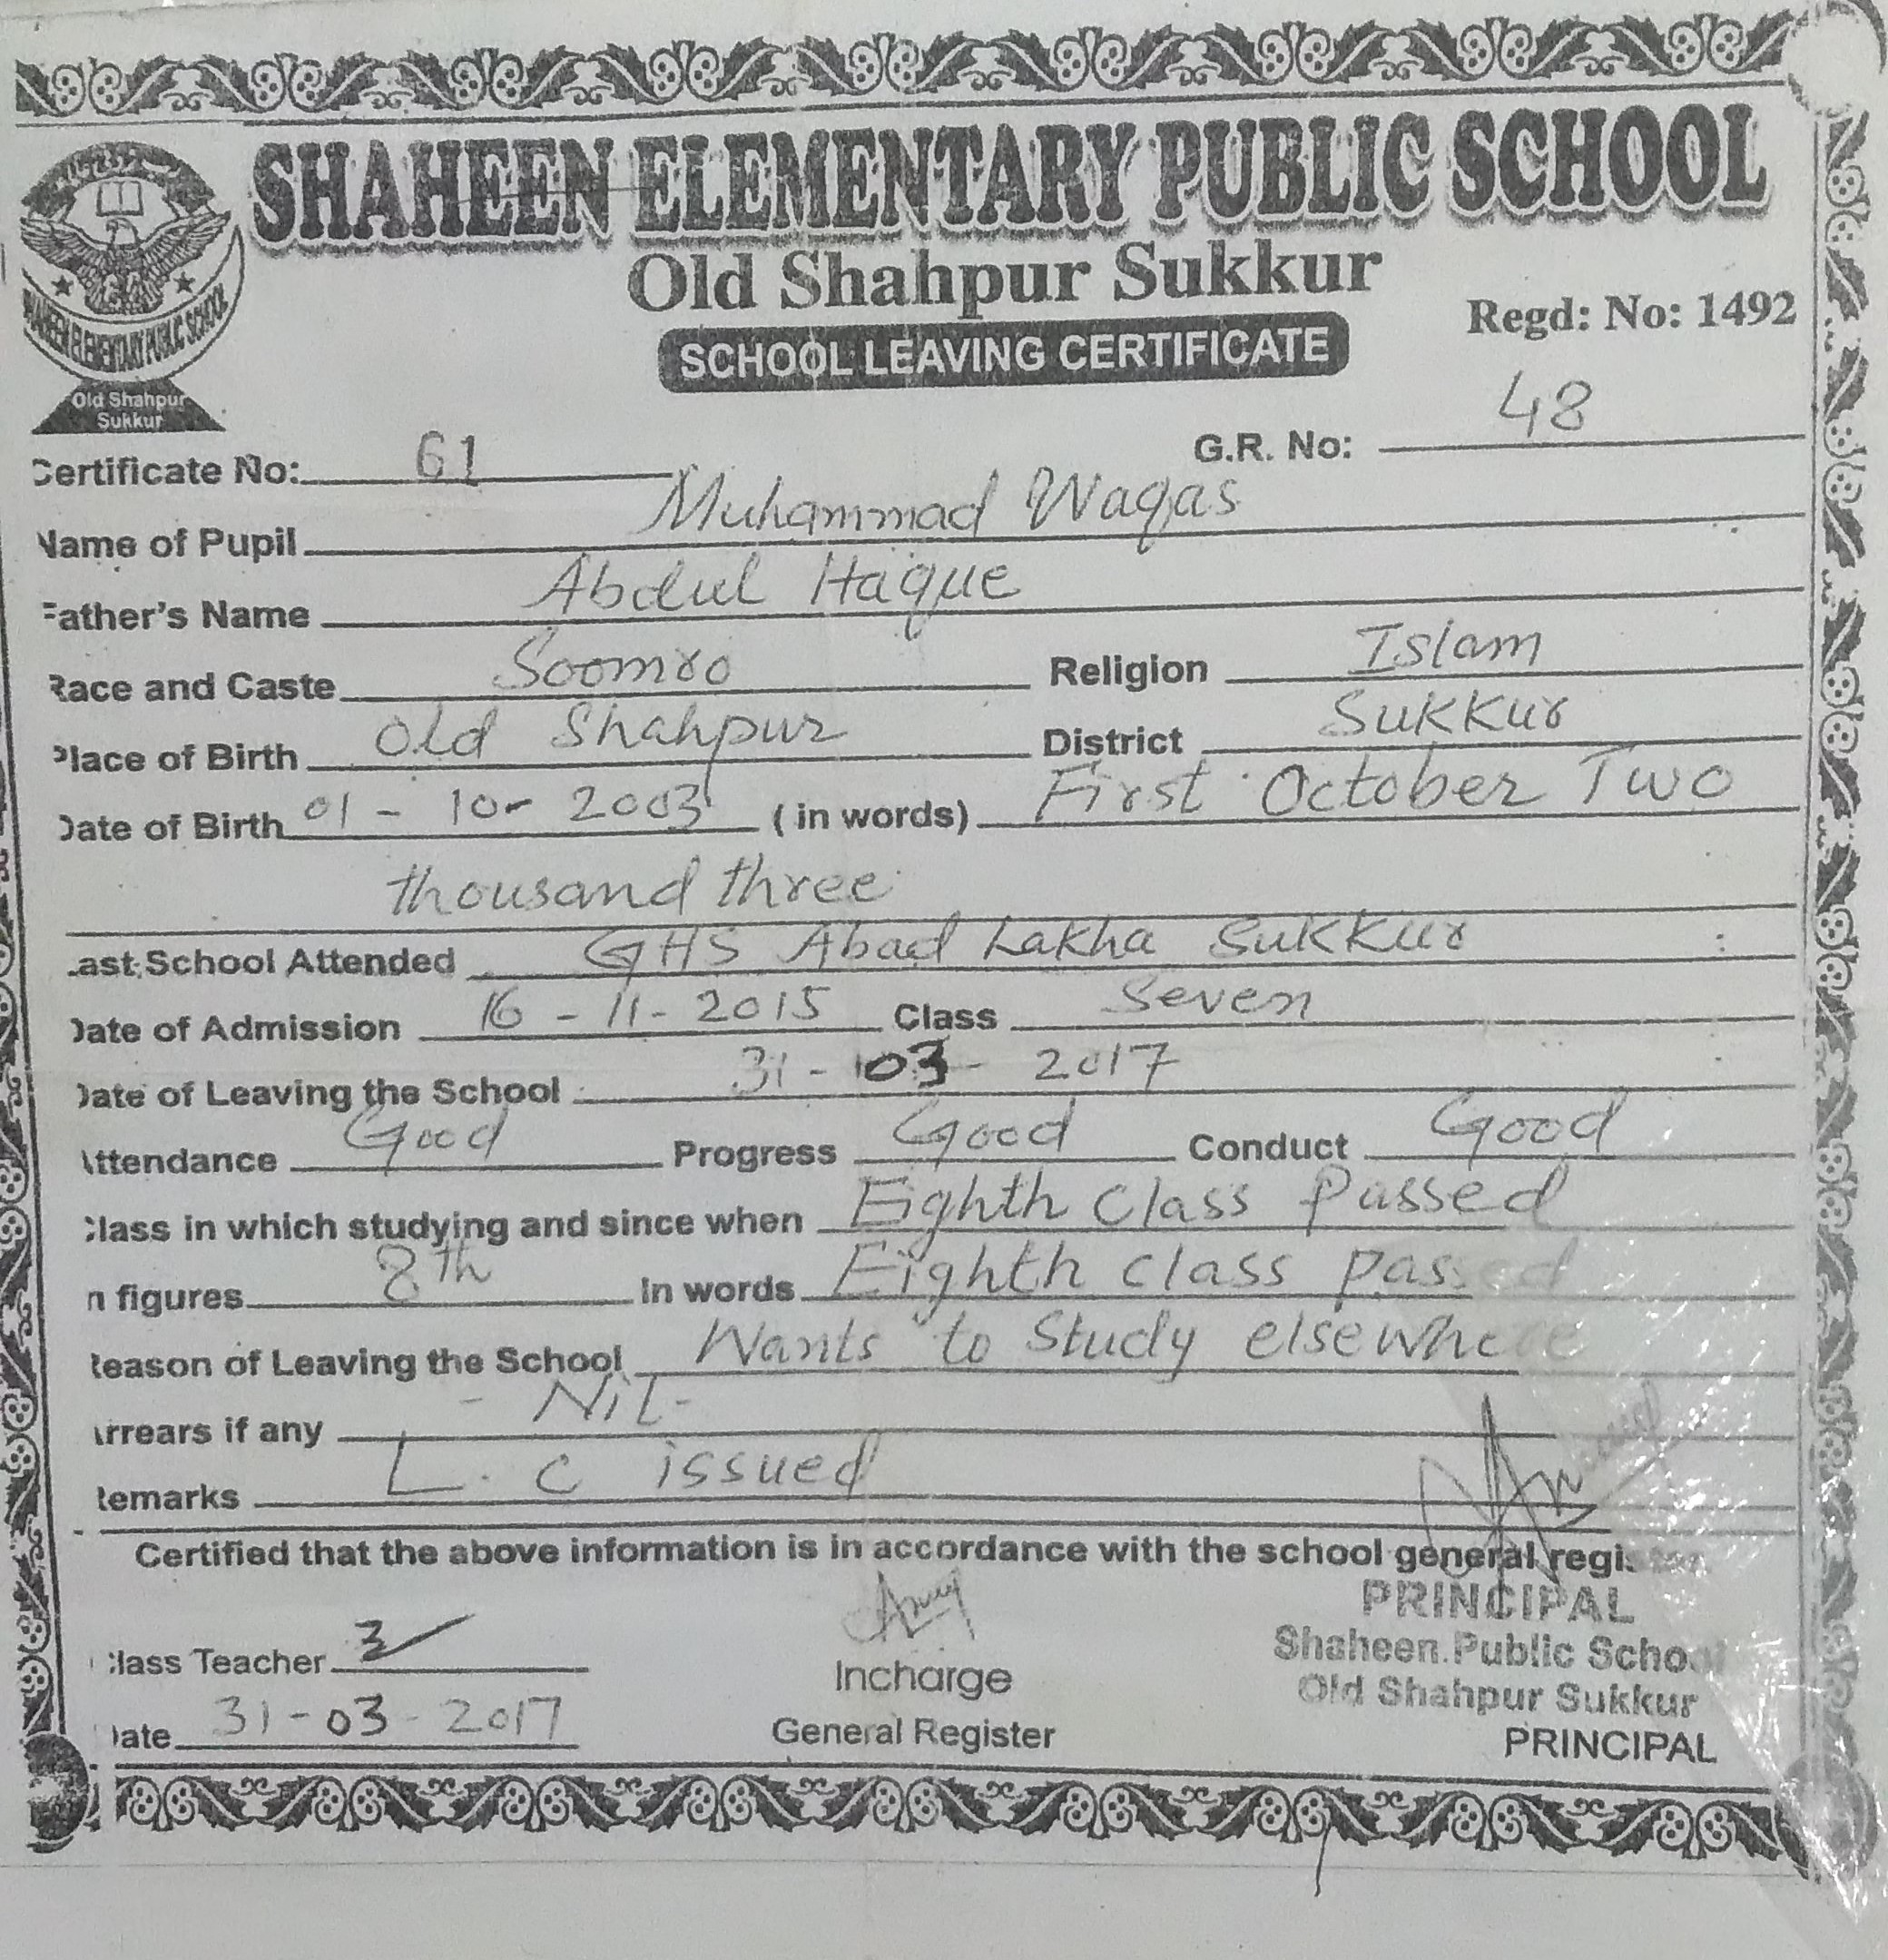 SHAHEEN ELEMENTARY PUBLIC SCHOOL
Old Shahpur Sukkur
Regd: No: 1492
SCHOOL LEAVING CERTIFICATE
SHAHEEN ELEMENTARY PUBLIC SCHOOL
Old Shahpur
Sukkur
Certificate No: 61 G.R. No: 48
Name of Pupil Muhammad Waqas
Father's Name Abdul Haque
Race and Caste Soomro Religion Islam
Place of Birth Old Shahpur District Sukkur
Date of Birth 01-10-2003 (in words) First October Two
thousand three
Last School Attended GHS Abad Lakha Sukkur
Date of Admission 16-11-2015 Class Seven
Date of Leaving the School 31-03-2017
Attendance Good Progress Good Conduct Good
Class in which studying and since when Eighth Class Passed
In figures 8th In words Eighth class passed
Reason of Leaving the School Wants to Study elsewhere
Arrears if any - Nil -
Remarks L.C issued
Certified that the above information is in accordance with the school general register
PRINCIPAL
Shaheen Public School
Old Shahpur Sukkur
Class Teacher
Incharge
Date 31-03-2017
General Register
PRINCIPAL